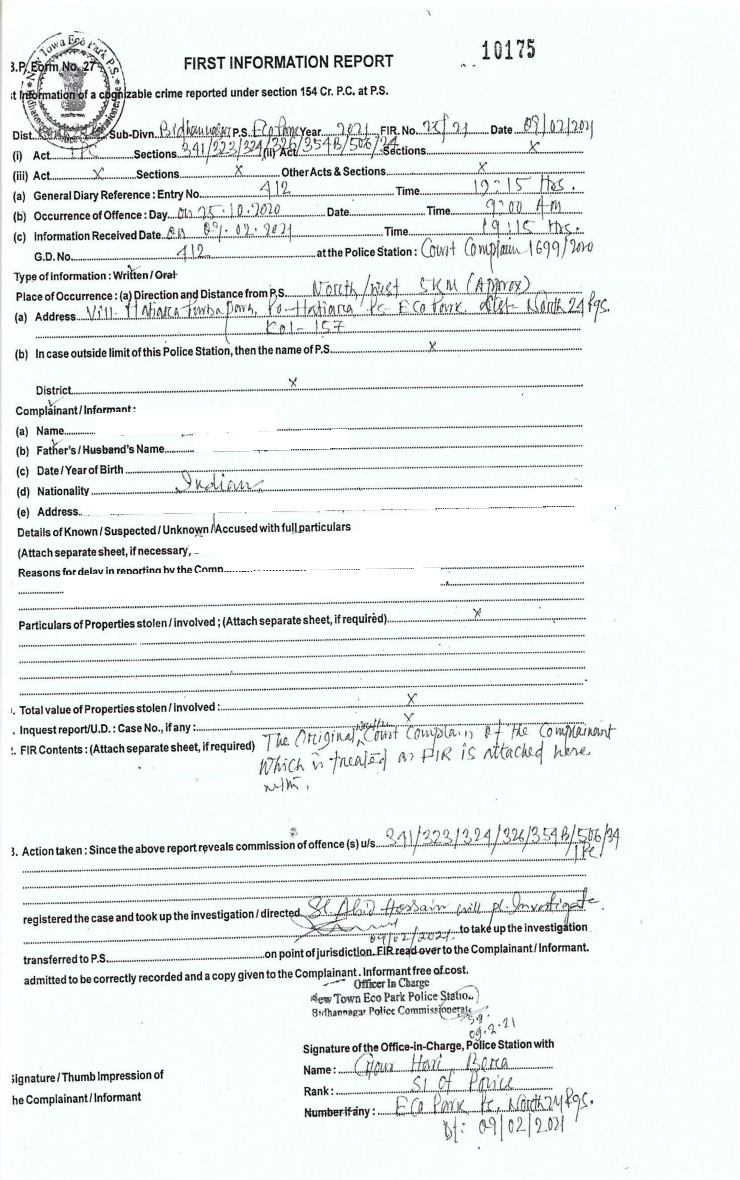 10175
FIRST INFORMATION REPORT
B.P. Form No. 27
New Town Eco Park P.S.
t Information of a cognizable crime reported under section 154 Cr. P.C. at P.S.
Dist. Sub-Divn. Bidhannagar P.S. Eco Park Year 2021 FIR. No. 23/21 Date 09/02/2021
(i) Act IPC Sections 341/323/324/326/354B/506/34 (ii) Act Sections X
(iii) Act X Sections X Other Acts & Sections X
(a) General Diary Reference : Entry No. 412 Time 19:15 Hrs.
(b) Occurrence of Offence : Day on 25.10.2020 Date Time 9:00 Am
(c) Information Received Date on 09.02.2021 Time 19:15 Hrs.
G.D. No. 412 at the Police Station : Court Complain 1699/2020
Type of information : Written / Oral
Place of Occurrence : (a) Direction and Distance from P.S. North/west 5KM (Approx)
(a) Address Vill- Hatiara Purbapara, Po-Hatiara Ps- Eco Park, dist- North 24 Pgs.
Kol- 157
(b) In case outside limit of this Police Station, then the name of P.S. X
District X
Complainant / Informant :
(a) Name
(b) Father's / Husband's Name
(c) Date / Year of Birth
(d) Nationality Indian
(e) Address
Details of Known / Suspected / Unknown / Accused with full particulars
(Attach separate sheet, if necessary,
Reasons for delay in reporting by the Comp
Particulars of Properties stolen / involved ; (Attach separate sheet, if required) X
. Total value of Properties stolen / involved : X
. Inquest report/U.D. : Case No., if any : X
. FIR Contents : (Attach separate sheet, if required) The Original written Court Complain of the Complainant
which is treated as FIR is attached here
with.
3. Action taken : Since the above report reveals commission of offence (s) u/s 341/323/324/326/354B/506/34
IPC
registered the case and took up the investigation / directed SI. Abid Hossain will pl. Investigate.
09/02/2021 to take up the investigation
transferred to P.S. on point of jurisdiction. FIR read over to the Complainant / Informant.
admitted to be correctly recorded and a copy given to the Complainant. Informant free of cost.
Officer In Charge
New Town Eco Park Police Station
Bidhannagar Police Commissionerate
09.2.21
Signature of the Office-in-Charge, Police Station with
Name : Gour Hari Bera
Rank : SI of Police
Number if any : Eco Park Ps, North 24 Pgs.
Dt: 09/02/2021
Signature / Thumb Impression of
he Complainant / Informant